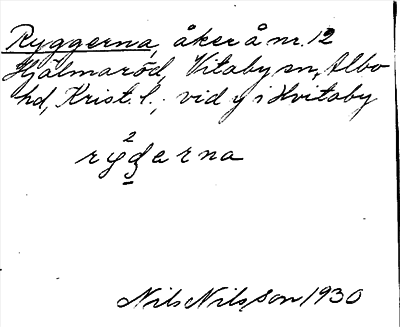 Ryggerna, åker å nr. 12
Hjälmaröd, Vitaby sn, Albo
hd, Krist. l., vid y i Hvitaby
2
rygerna
Nils Nilsson 1930